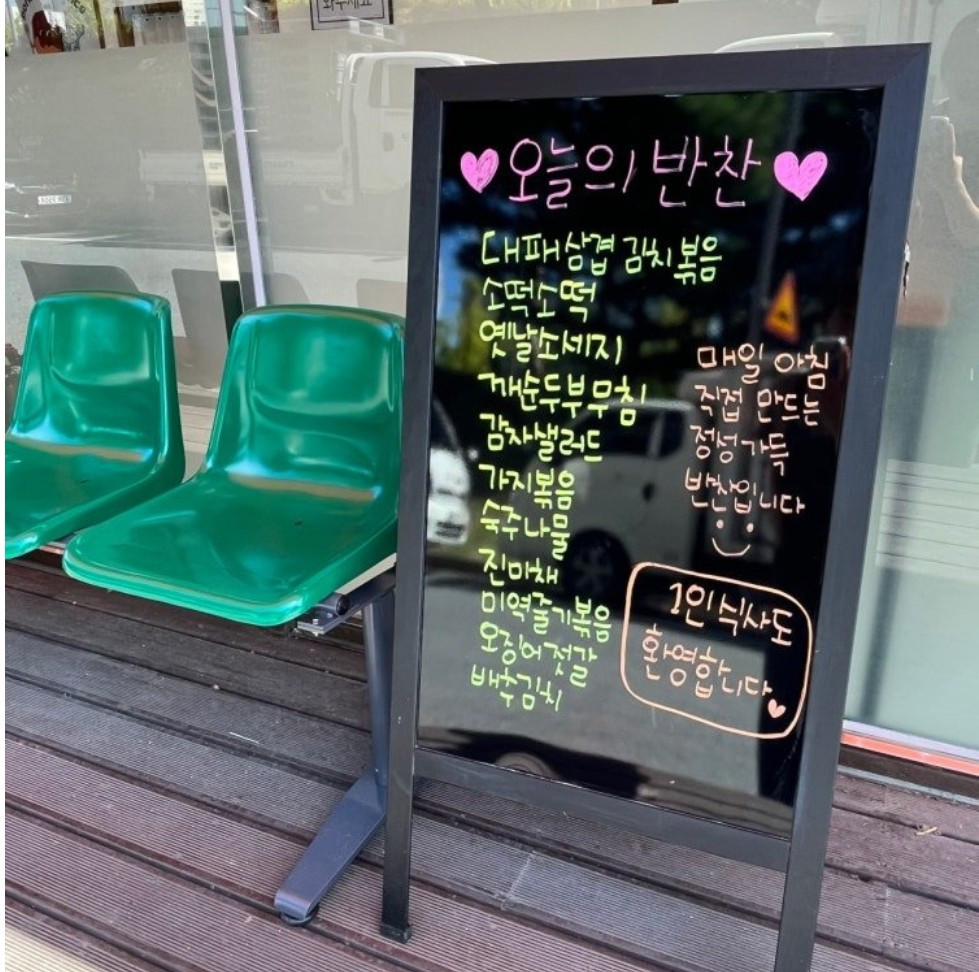 오늘의 반찬
대패삼겹 김치볶음
소떡소떡
옛날소세지
깨순두부무침
감자샐러드
가지볶음
숙주나물
진미채
미역줄기볶음
오징어젓갈
배추김치
매일 아침
직접 만드는
정성가득
반찬입니다
1인 식사도
환영합니다